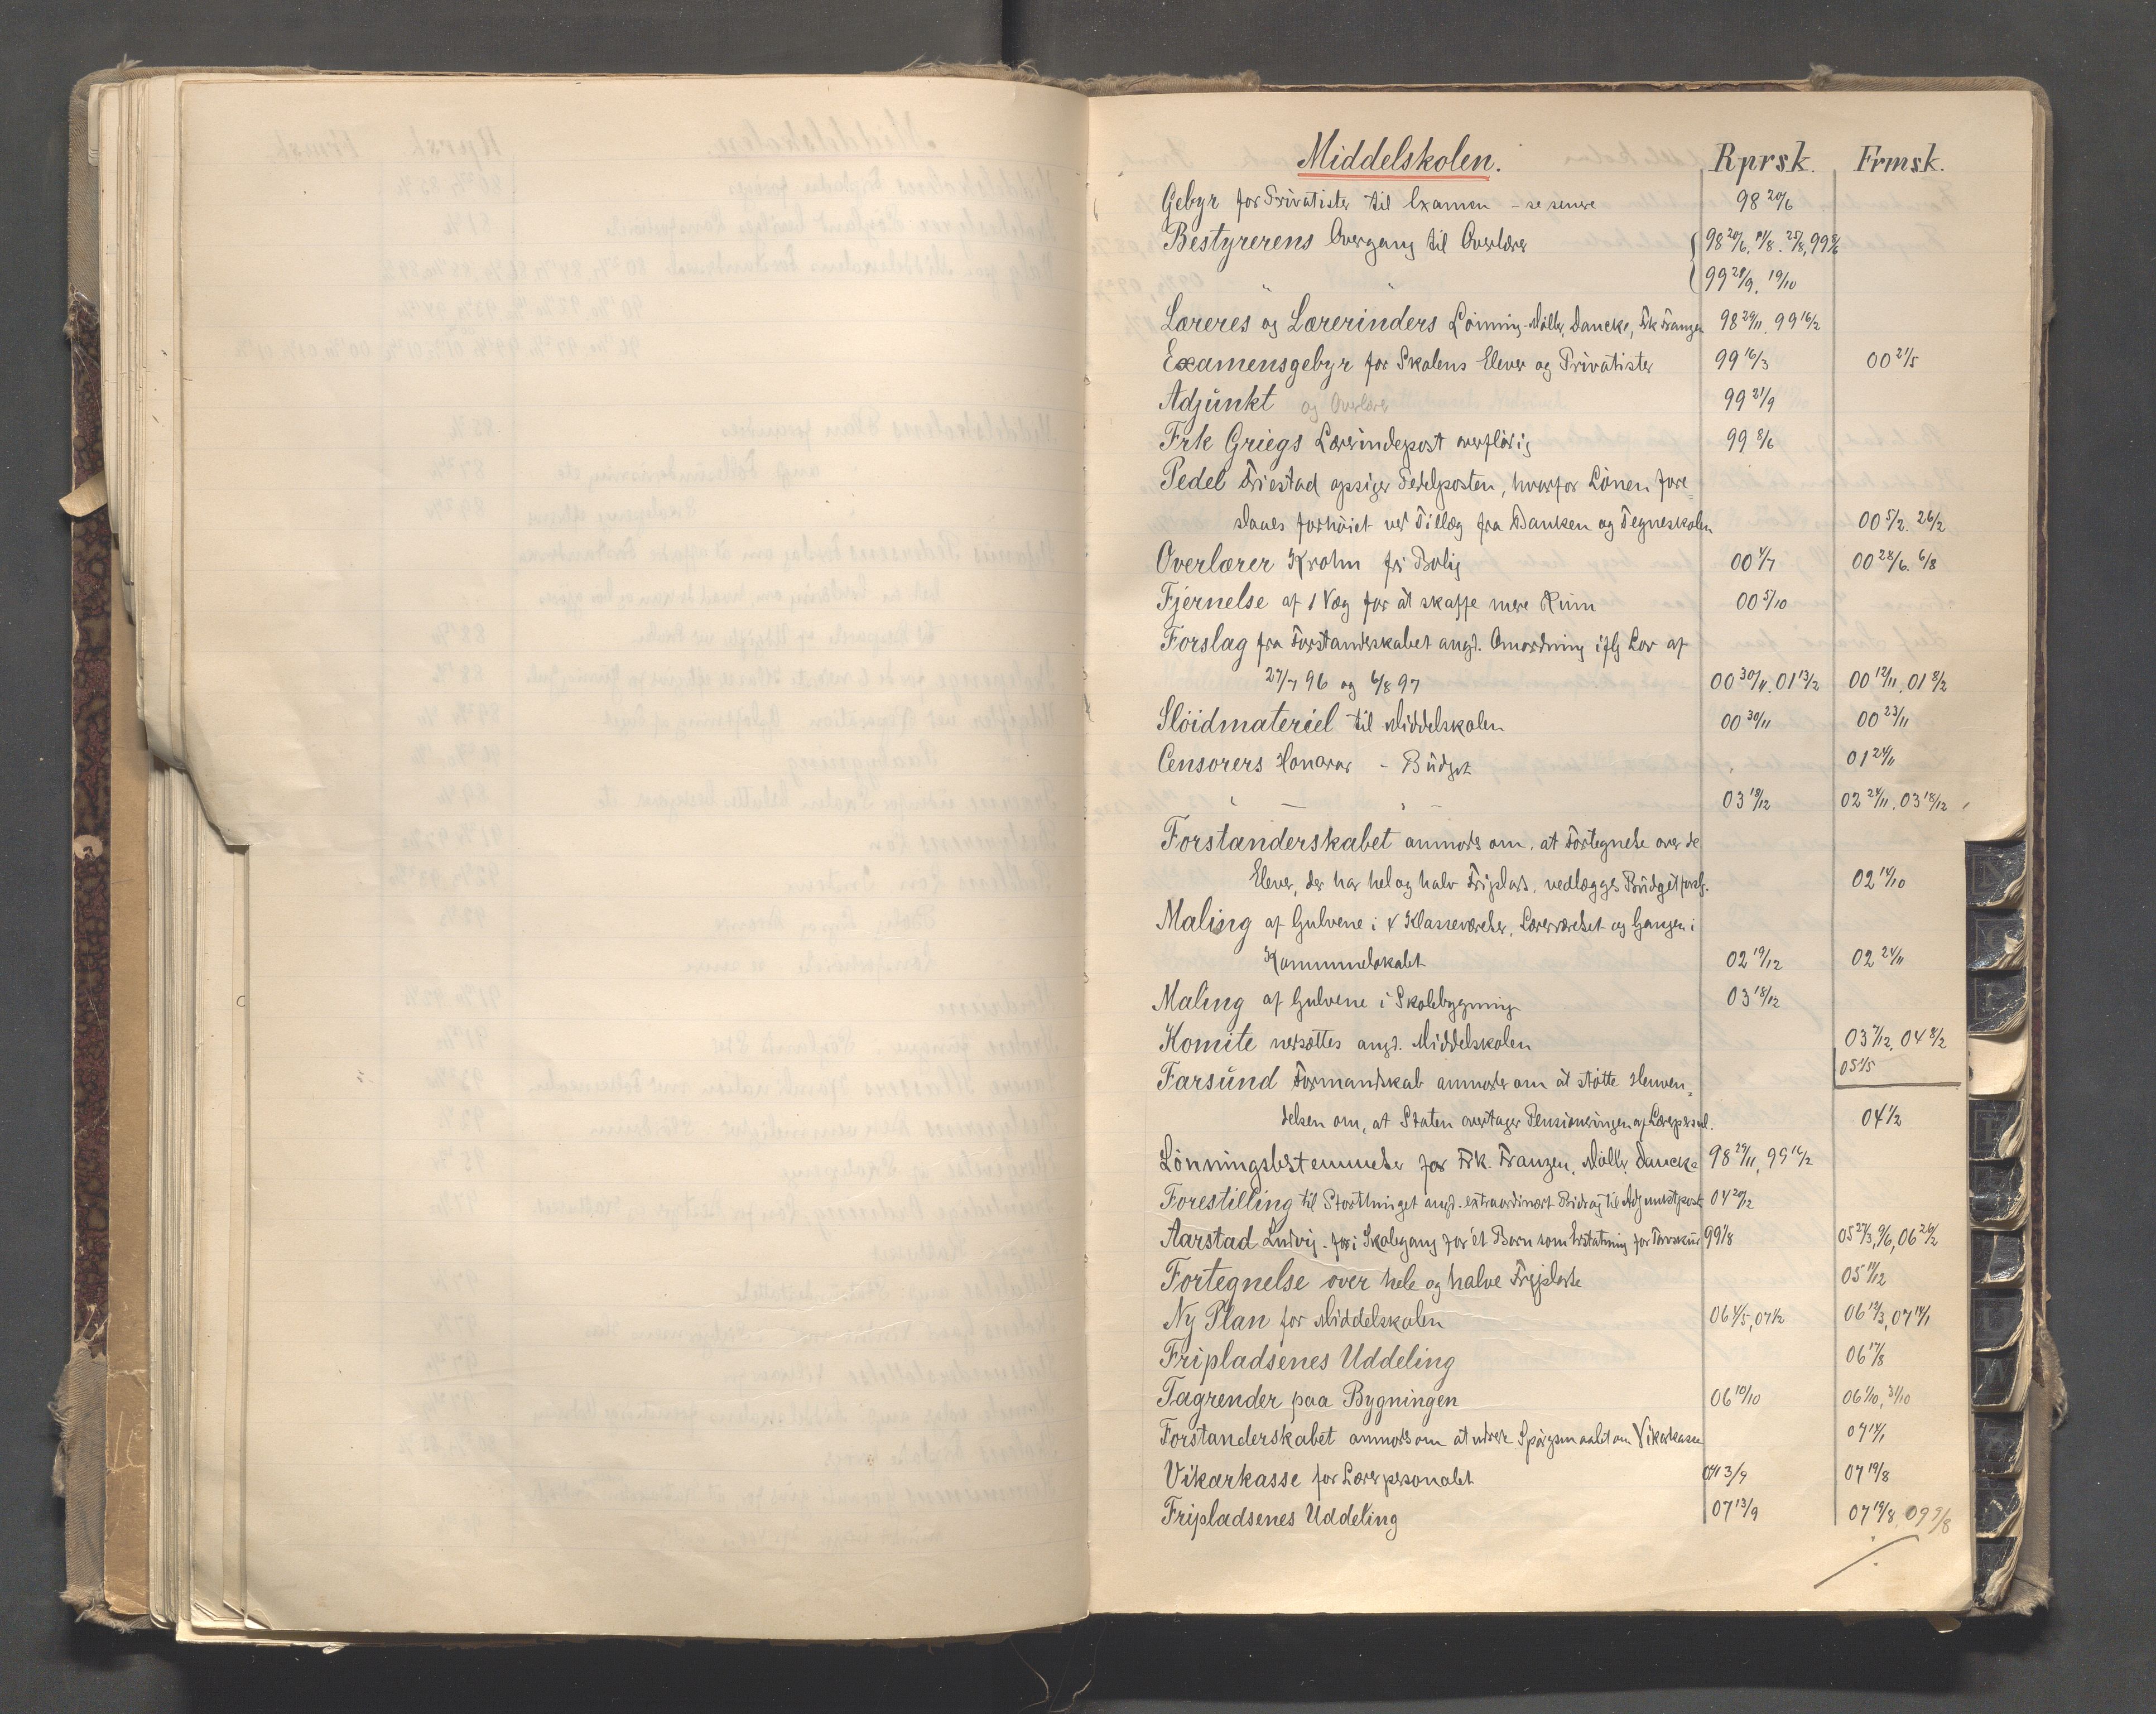 Middelskolen. Rprsk. Frmsk.
Gebyr for Privatister til Examen - se senere 98 20/6
Bestyrerens Overgang til Overlærer 98 20/6, 11/8. 25/8, 99 8/6
" " 99 28/9, 19/10
Læreres og Lærerinders Lönning - Möller, Dancke, Frk Franzen 98 29/11, 99 16/2
Examensgebyr for Skolens Elever og Privatister 99 16/3 00 21/5
Adjunkt og Overlærer 99 21/9
Frk Griegs Lærerindepost overflödig 99 8/6
Pedel Friestad opsiger Pedelposten, hvorfor Lönen fore=
slaaes forhöiet ved Tillæg fra Banken og Tegneskolen 00 5/2. 26/2
Overlærer Krohn fri Bolig 00 4/7 00 28/6. 6/8
Fjernelse af 1 Væg for at skaffe mere Rum 00 5/10
Forslag fra Forstanderskabet angd. Omordning iflg Lov af
27/7 96 og 6/8 97 00 30/11. 01 13/2 00 12/11, 01 8/2
Slöidmateriel til Middelskolen 00 30/11 00 23/11
Censorers Honorar - Budget 01 24/11
" — " — 03 18/12 02 24/11, 03 18/12
Forstanderskabet anmodes om, at Fortegnelse over de
Elever, der har hel og halv Friplads, vedlægges Budgetforsl. 02 14/10
Maling af Gulvene i 4 Klasseværelser, Lærerværelset og Gangen i
Kommunelokalet 02 19/12 02 24/11
Maling af Gulvene i Skolebygning 03 18/12
Komite nedsættes angd. Middelskolen 03 7/12, 04 8/2
05 4/5
Farsund Formandskab anmoder om at stötte Henven=
delsen om, at Staten overtager Pensioneringen af Lærerpersonl. 04 1/2
Lönningsbestemmelser for Frk. Franzen, Möller, Dancke 98 29/11, 99 16/2
Forestilling til Storthinget angd. extraordinært Bidrag til Adjunktpost 04 20/12
Aarstad Ludvig - fri Skolegang for ét Barn som Erstatning for Torvskur 99 1/8 05 27/3, 9/6, 06 26/2
Fortegnelse over hele og halve Fripladse 05 11/12
Ny Plan for Middelskolen 06 4/5, 07 1/2 06 12/3, 07 14/1
Fripladsenes Uddeling 06 17/8
Tagrender paa Bygningen 06 10/10 06 1/10, 31/10
Forstanderskabet anmodes om at utrede Spörgsmaalet om Vikarkasse 07 14/1
Vikarkasse for Lærerpersonalet 07 13/9 07 19/8
Fripladsenes Uddeling 07 13/9 07 19/8, 09 9/8